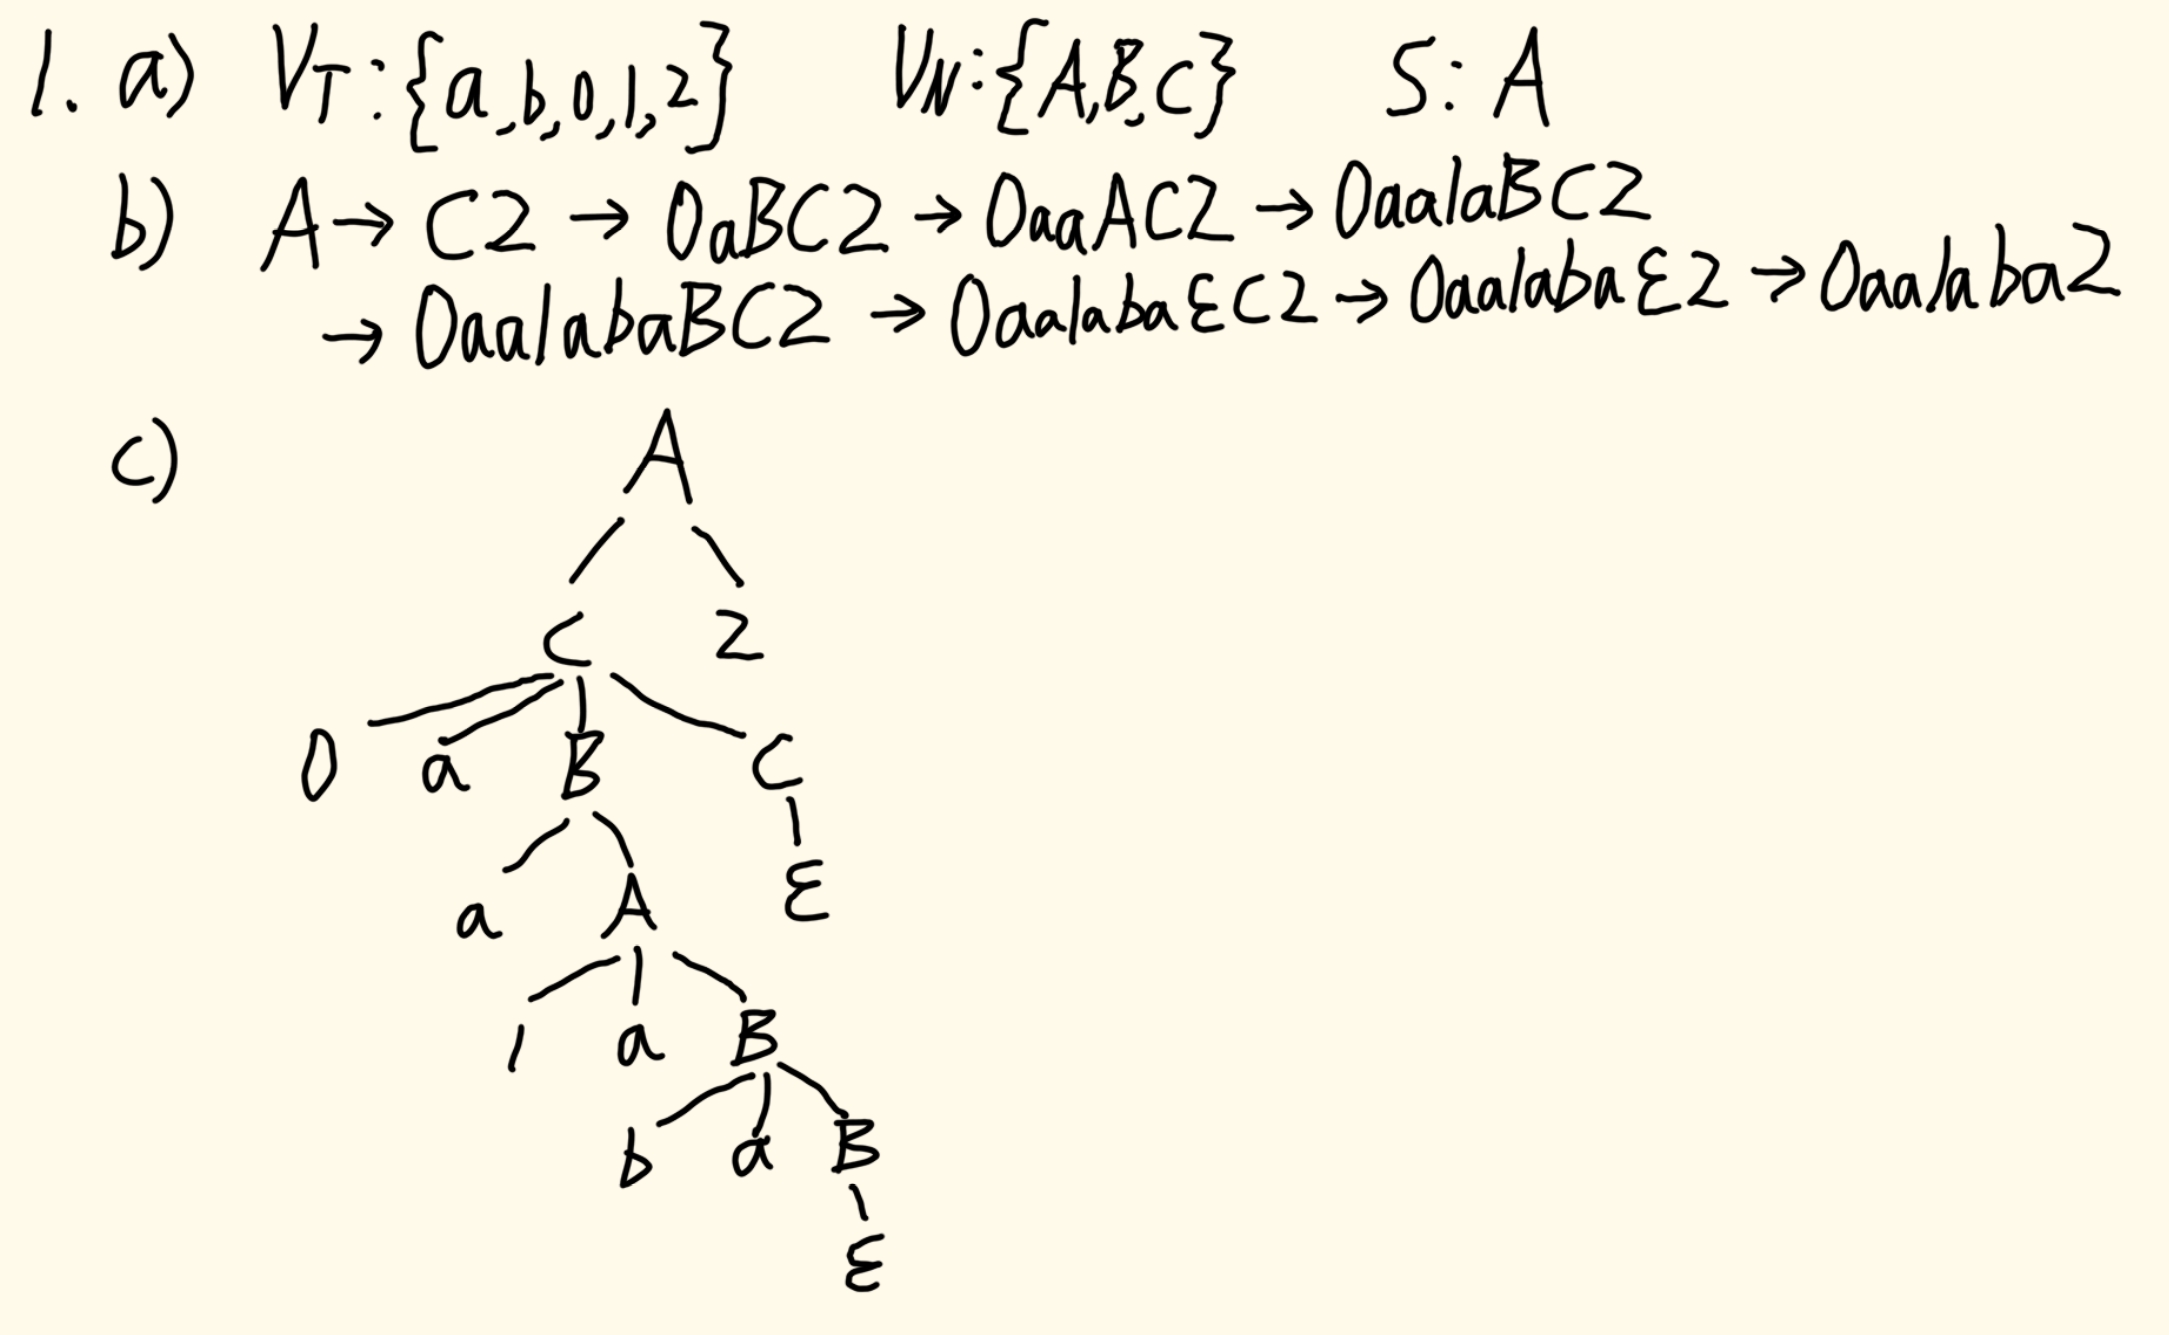 1. a) VT:{a,b,0,1,2} VN:{A,B,C} S: A
b) A → C2 → 0aBC2 → 0aaAC2 → 0aa1aBC2
→ 0aa1abaBC2 → 0aa1abaεC2 → 0aa1abaε2 → 0aa1aba2
c) A
C 2
0 a B C
a A ε
1 a B
b a B
ε